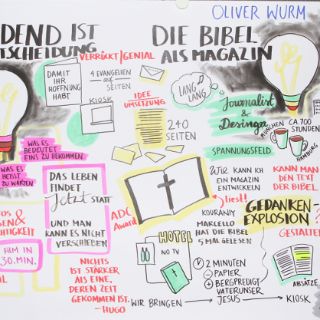 OLIVER WURM
DEND IST
TSCHEIDUNG
VERRÜCKT/GENIAL
DIE BIBEL
ALS MAGAZIN
DAMIT IHR
HOFFNUNG
HABT
4 EVANGELIEN auf
SEITEN
KIOSK
IDEE
UMSETZUNG
LANG
LANG
240
SEITEN
Journalist &
Designer
AACHEN
CA. 700
STUNDEN
HAMBURG
SPANNUNGSFELD
WAS ES
BEDEUTET
EINS ZU BEKOMMEN.
WAS ES
HEIßT
ZU WARTEN
DAS LEBEN
FINDET
Jetzt STATT
UND MAN
KANN ES NICHT
VERSCHIEBEN
WIE KANN ICH
EIN MAGAZIN
ENTWICKELN
KANN MAN
DEN TEXT
DER BIBEL
liest!
GESTALTEN
GEDANKEN-
EXPLOSION
ADC
Award
MARCELLO
HAT DIE BIBEL
5 MAL GELESEN
HIM IN
30 MIN.
NICHTS
IST STÄRKER
ALS EINE,
DEREN ZEIT
GEKOMMEN IST.
-HUGO
HOTEL
NO TV
2 MINUTEN
PAPIER
BERGPREDIGT
VATERUNSER
ABSÄTZE
WIR BRINGEN
JESUS
KIOSK